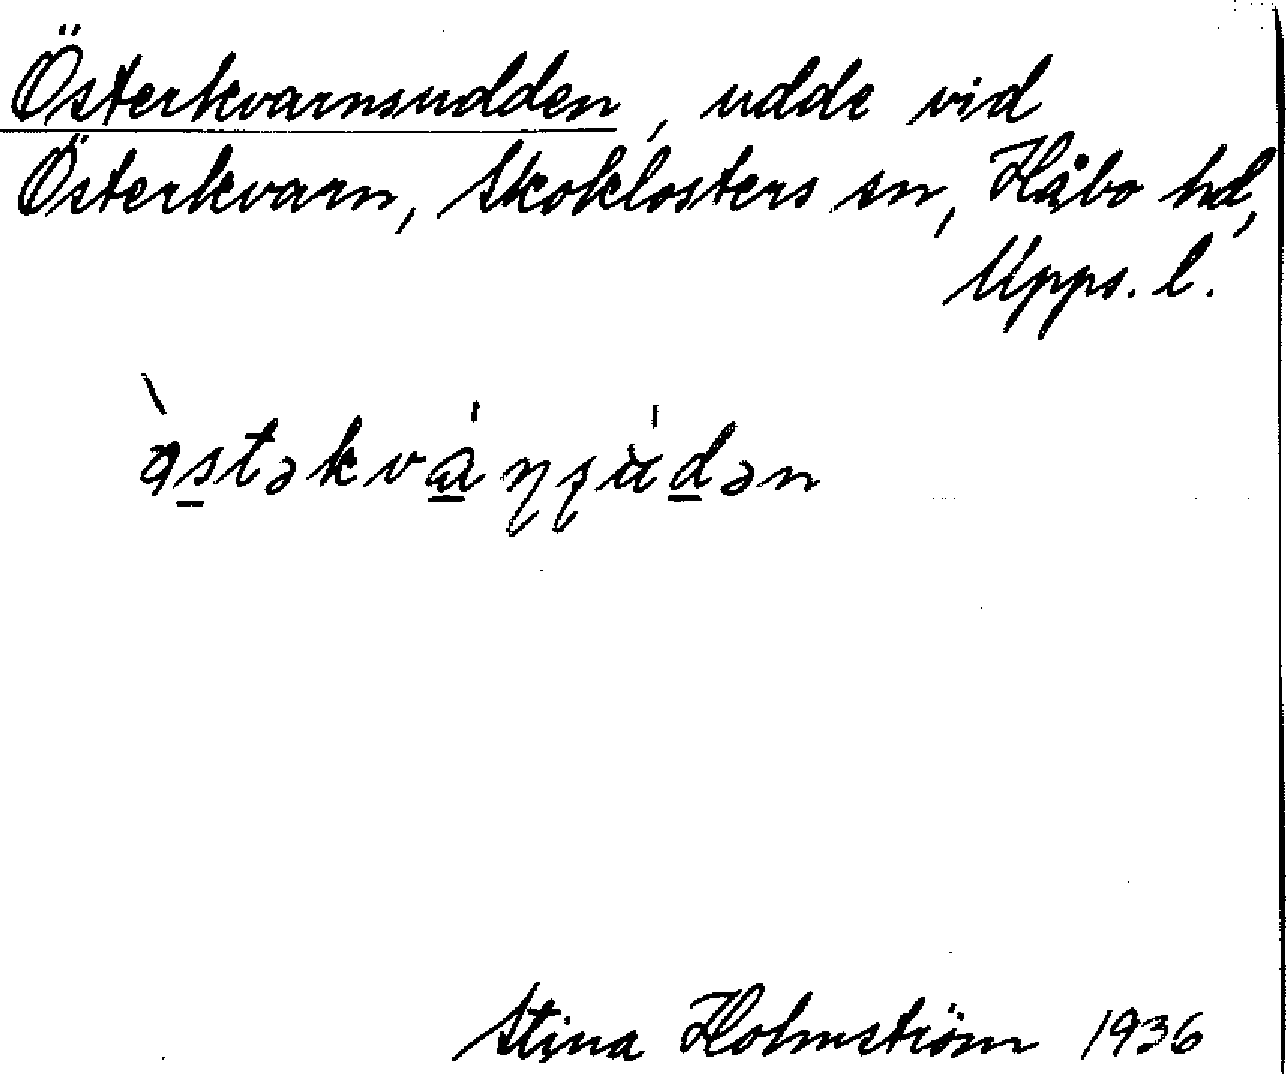 Österkvarnsudden, udde vid
Österkvarn, Skoklosters sn, Håbo hd,
Upps. l.
Stina Holmström 1936